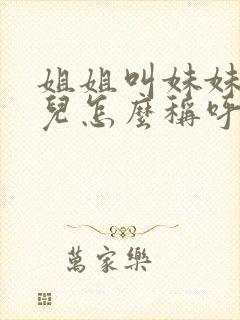 姐姐叫妹妹
兒怎麼稱呼
萬家樂